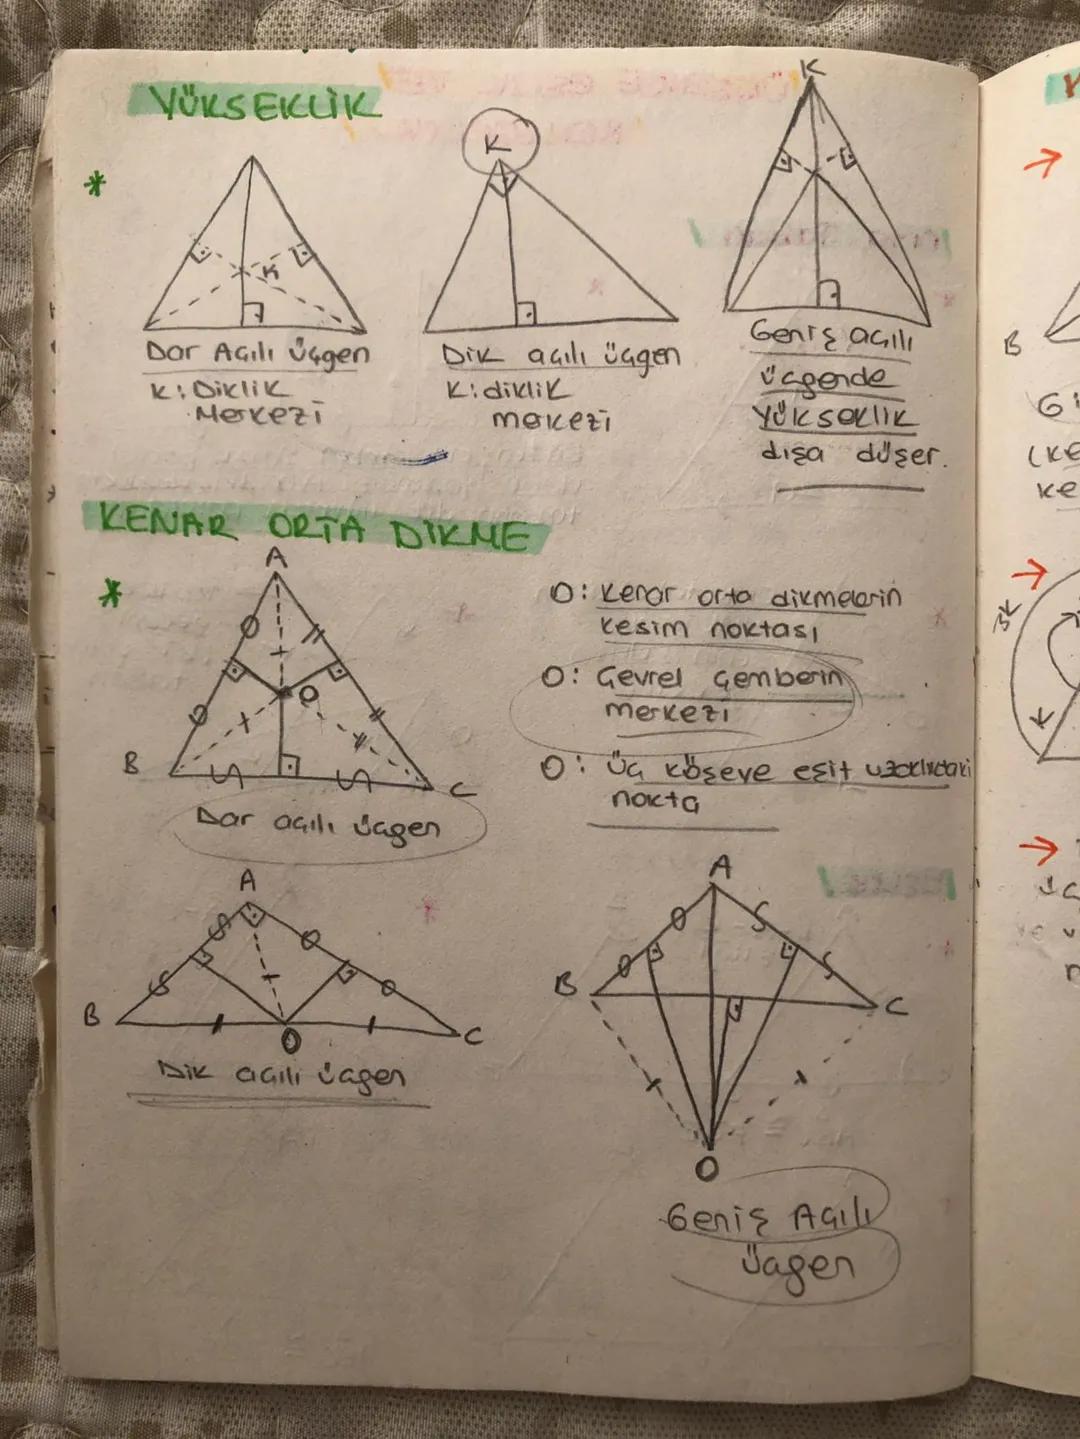 YÜKSEKLİK
*
K
Dar Açılı üçgen
K: Diklik
Merkezi
K
Dik açılı üçgen
K: diklik
merkezi
K
Geniş açılı
üçgende
yükseklik
dışa düşer.
KENAR ORTA DİKME
*
A
O
B
C
Dar açılı üçgen
O: Kenar orta dikmelerin
kesim noktası
O: Çevrel çemberin
merkezi
O: Üç köşeye eşit uzaklıktaki
nokta
A
B
O
C
Dik açılı üçgen
A
B
C
O
Geniş Açılı
üçgen
B
3K
K